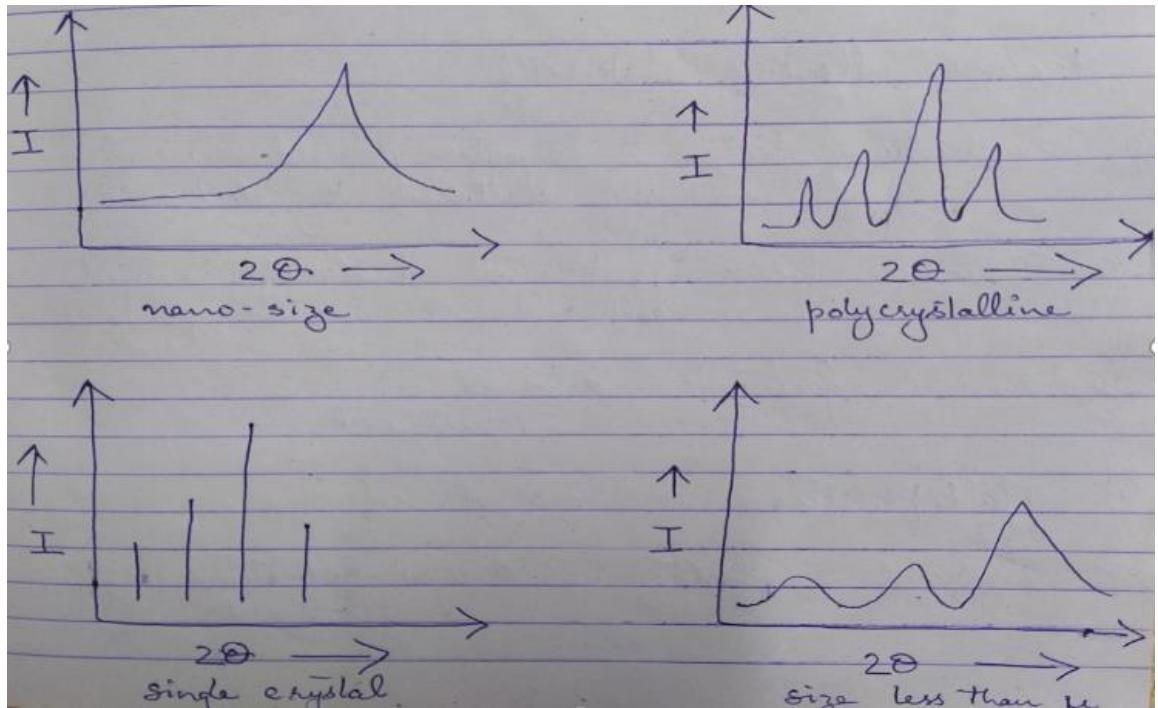 I
2θ
nano-size
I
2θ
polycrystalline
I
2θ
single crystal
I
2θ
size less than μ